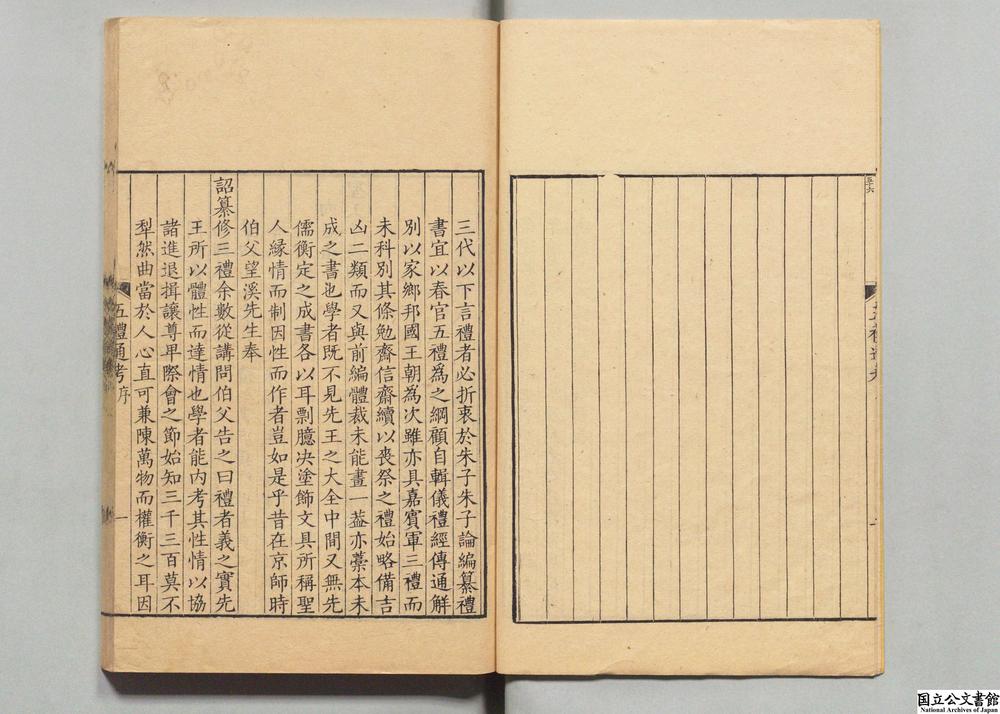 三代以下言禮者必折衷於朱子朱子論編纂禮
書宜以春官五禮為之綱顧自輯儀禮經傳通解
別以家鄉邦國王朝為次雖亦具嘉賓軍三禮而
未科別其條勉齋信齋續以喪祭之禮始略備吉
凶二類而又與前編體裁未能畫一葢亦藁本未
成之書也學者既不見先王之大全中間又無先
儒衡定之成書各以耳剽臆决塗飾文具所稱聖
人緣情而制因性而作者豈如是乎昔在京師時
伯父望溪先生奉
詔纂修三禮余數從講問伯父告之曰禮者義之實先
王所以體性而達情也學者能内考其性情以協
諸進退揖讓尊卑際會之節始知三千三百莫不
犁然曲當於人心直可兼陳萬物而權衡之耳因
五禮通考 序
一
国立公文書館
National Archives of Japan